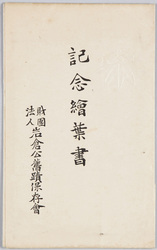 記念繪葉書
財團法人岩倉公舊蹟保存會